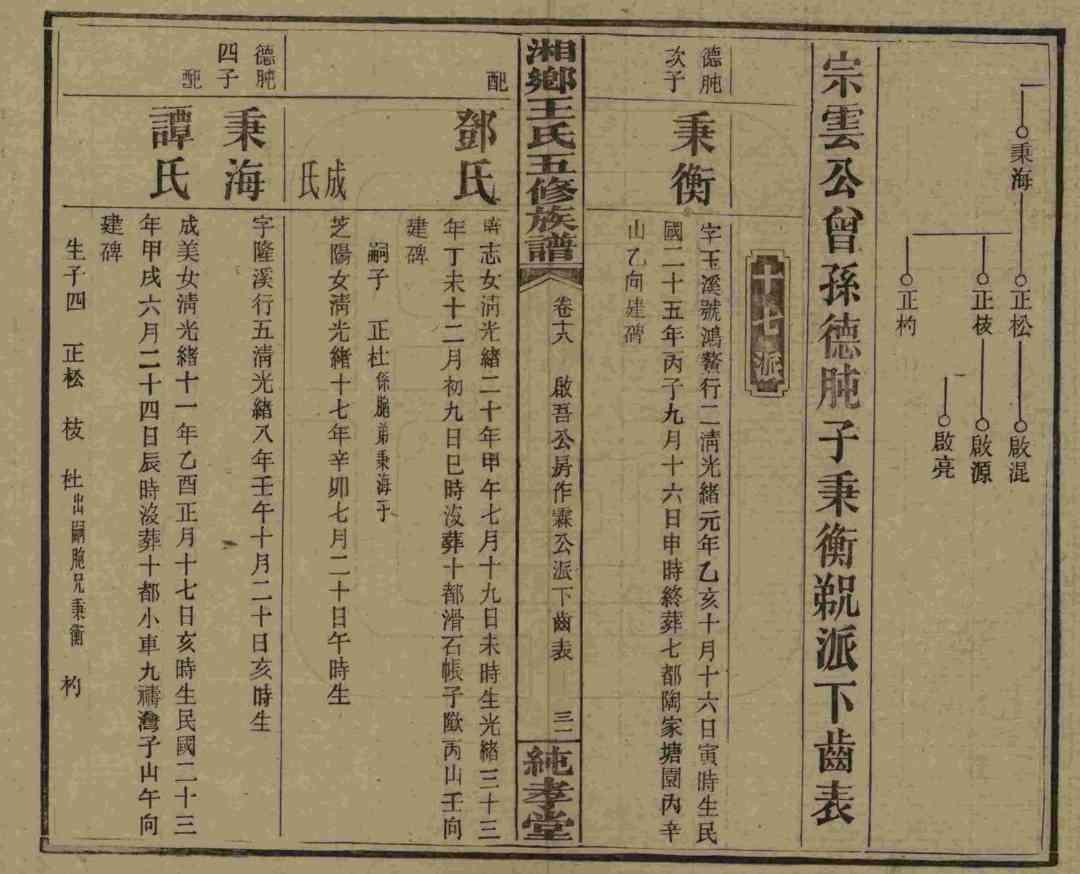 秉海
正松
正枝
正杓
啟混
啟源
啟亮
宗雲公曾孫德肫子秉衡派下齒表
十七派
德肫
次子
秉衡
字玉溪號鴻鰲行二清光緒元年乙亥十月十六日寅時生民
國二十五年丙子九月十六日申時終葬七都陶家塘園丙辛
山乙向建碑
湘鄉王氏五修族譜
卷十八
啟吾公房作霖公派下齒表
三一
純孝堂
配
鄧氏
志女清光緒二十年甲午七月十九日未時生光緒三十三
年丁未十二月初九日巳時沒葬十都滑石帳子嶽丙山壬向
建碑
嗣子 正杜係胞弟秉海子
成氏
芝陽女清光緒十七年辛卯七月二十日午時生
德肫
四子
秉海
字隆溪行五清光緒八年壬午十月二十日亥時生
配
譚氏
成美女清光緒十一年乙酉正月十七日亥時生民國二十三
年甲戌六月二十四日辰時沒葬十都小車九禱灣子山午向
建碑
生子四 正松 枝 杜出嗣胞兄秉衡 杓